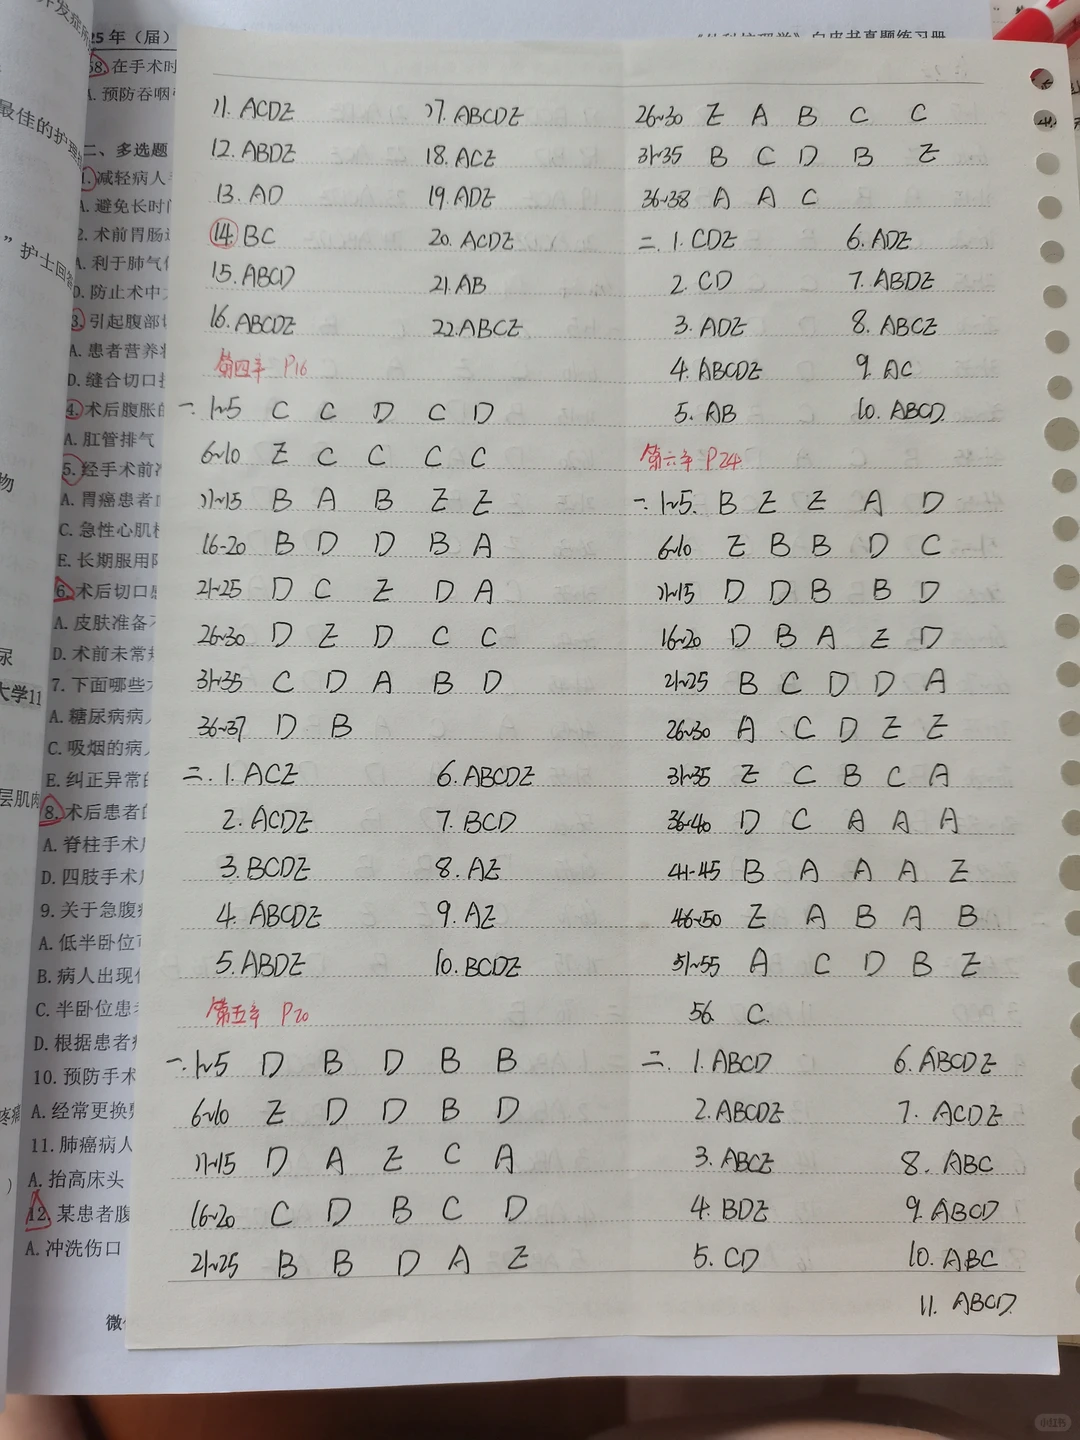 25年（届）
《外科护理学》白皮书真题练习册
68.在手术时
A.预防吞咽
最佳的护理
二、多选题
1.减轻病人
A.避免长时间
2.术前胃肠道
”护士回答
A.利于肺气
D.防止术中
3.引起腹部
A.患者营养
D.缝合切口
4.术后腹胀的
A.肛管排气
物
5.经手术前
A.胃癌患者
C.急性心肌
E.长期服用
6.术后切口
A.皮肤准备
尿
D.术前未常
大学11
7.下面哪些
A.糖尿病病
C.吸烟的病
E.纠正异常的
层肌肉
8.术后患者的
A.脊柱手术
D.四肢手术
9.关于急腹
A.低半卧位可
B.病人出现
C.半卧位患者
D.根据患者
10.预防手术
疼痛
A.经常更换
11.肺癌病人
A.抬高床头
12.某患者腹
A.冲洗伤口
微
11. ACDE
12. ABDE
13. AD
14. BC
15. ABCD
16. ABCDE
17. ABCDE
18. ACE
19. ADE
20. ACDE
21. AB
22. ABCE
第四章 P16
一. 1~5 C C D C D
6~10 E C C C C
11~15 B A B E E
16-20 B D D B A
21~25 D C E D A
26~30 D E D C C
31~35 C D A B D
36~37 D B
二. 1. ACE
2. ACDE
3. BCDE
4. ABCDE
5. ABDE
6. ABCDE
7. BCD
8. AE
9. AE
10. BCDE
第五章 P20
一. 1~5 D B D B B
6~10 E D D B D
11~15 D A E C A
16~20 C D B C D
21~25 B B D A E
26~30 E A B C C
31~35 B C D B E
36~38 A A C
二. 1. CDE
2. CD
3. ADE
4. ABCDE
5. AB
6. ADE
7. ABDE
8. ABCE
9. AC
10. ABCD.
第六章 P24
一. 1~5. B E E A D
6~10 E B B D C
11~15 D D B B D
16~20 D B A E D
21~25 B C D D A
26~30 A C D E E
31~35 E C B C A
36~40 D C A A A
41-45 B A A A E
46~50 E A B A B
51~55 A C D B E
56. C.
二. 1. ABCD
2. ABCDE
3. ABCE
4. BDE
5. CD
6. ABCDE
7. ACDE
8. ABC
9. ABCD
10. ABC
11. ABCD.
小红书